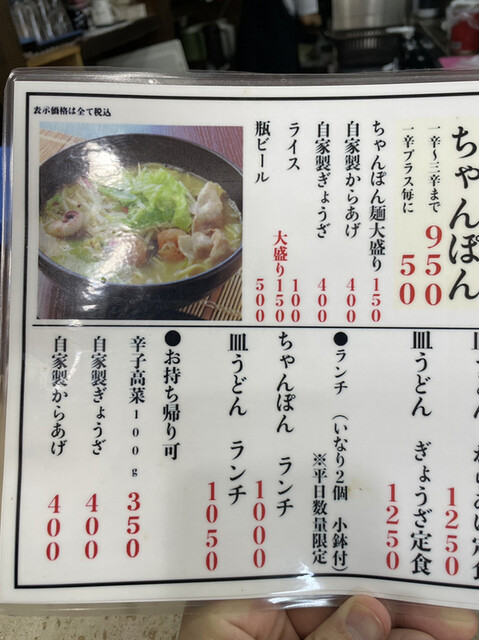 表示価格は全て税込
ちゃんぽん
一辛～三辛まで 950
一辛プラス毎に 50
ちゃんぽん麺大盛り 150
自家製からあげ 400
自家製ぎょうざ 400
ライス 100
大盛り 150
瓶ビール 500
定食 1250
皿うどん ぎょうざ定食 1250
●ランチ (いなり2個 小鉢付)
※平日数量限定
ちゃんぽん ランチ 1000
皿うどん ランチ 1050
●お持ち帰り可
辛子高菜100g 350
自家製ぎょうざ 400
自家製からあげ 400